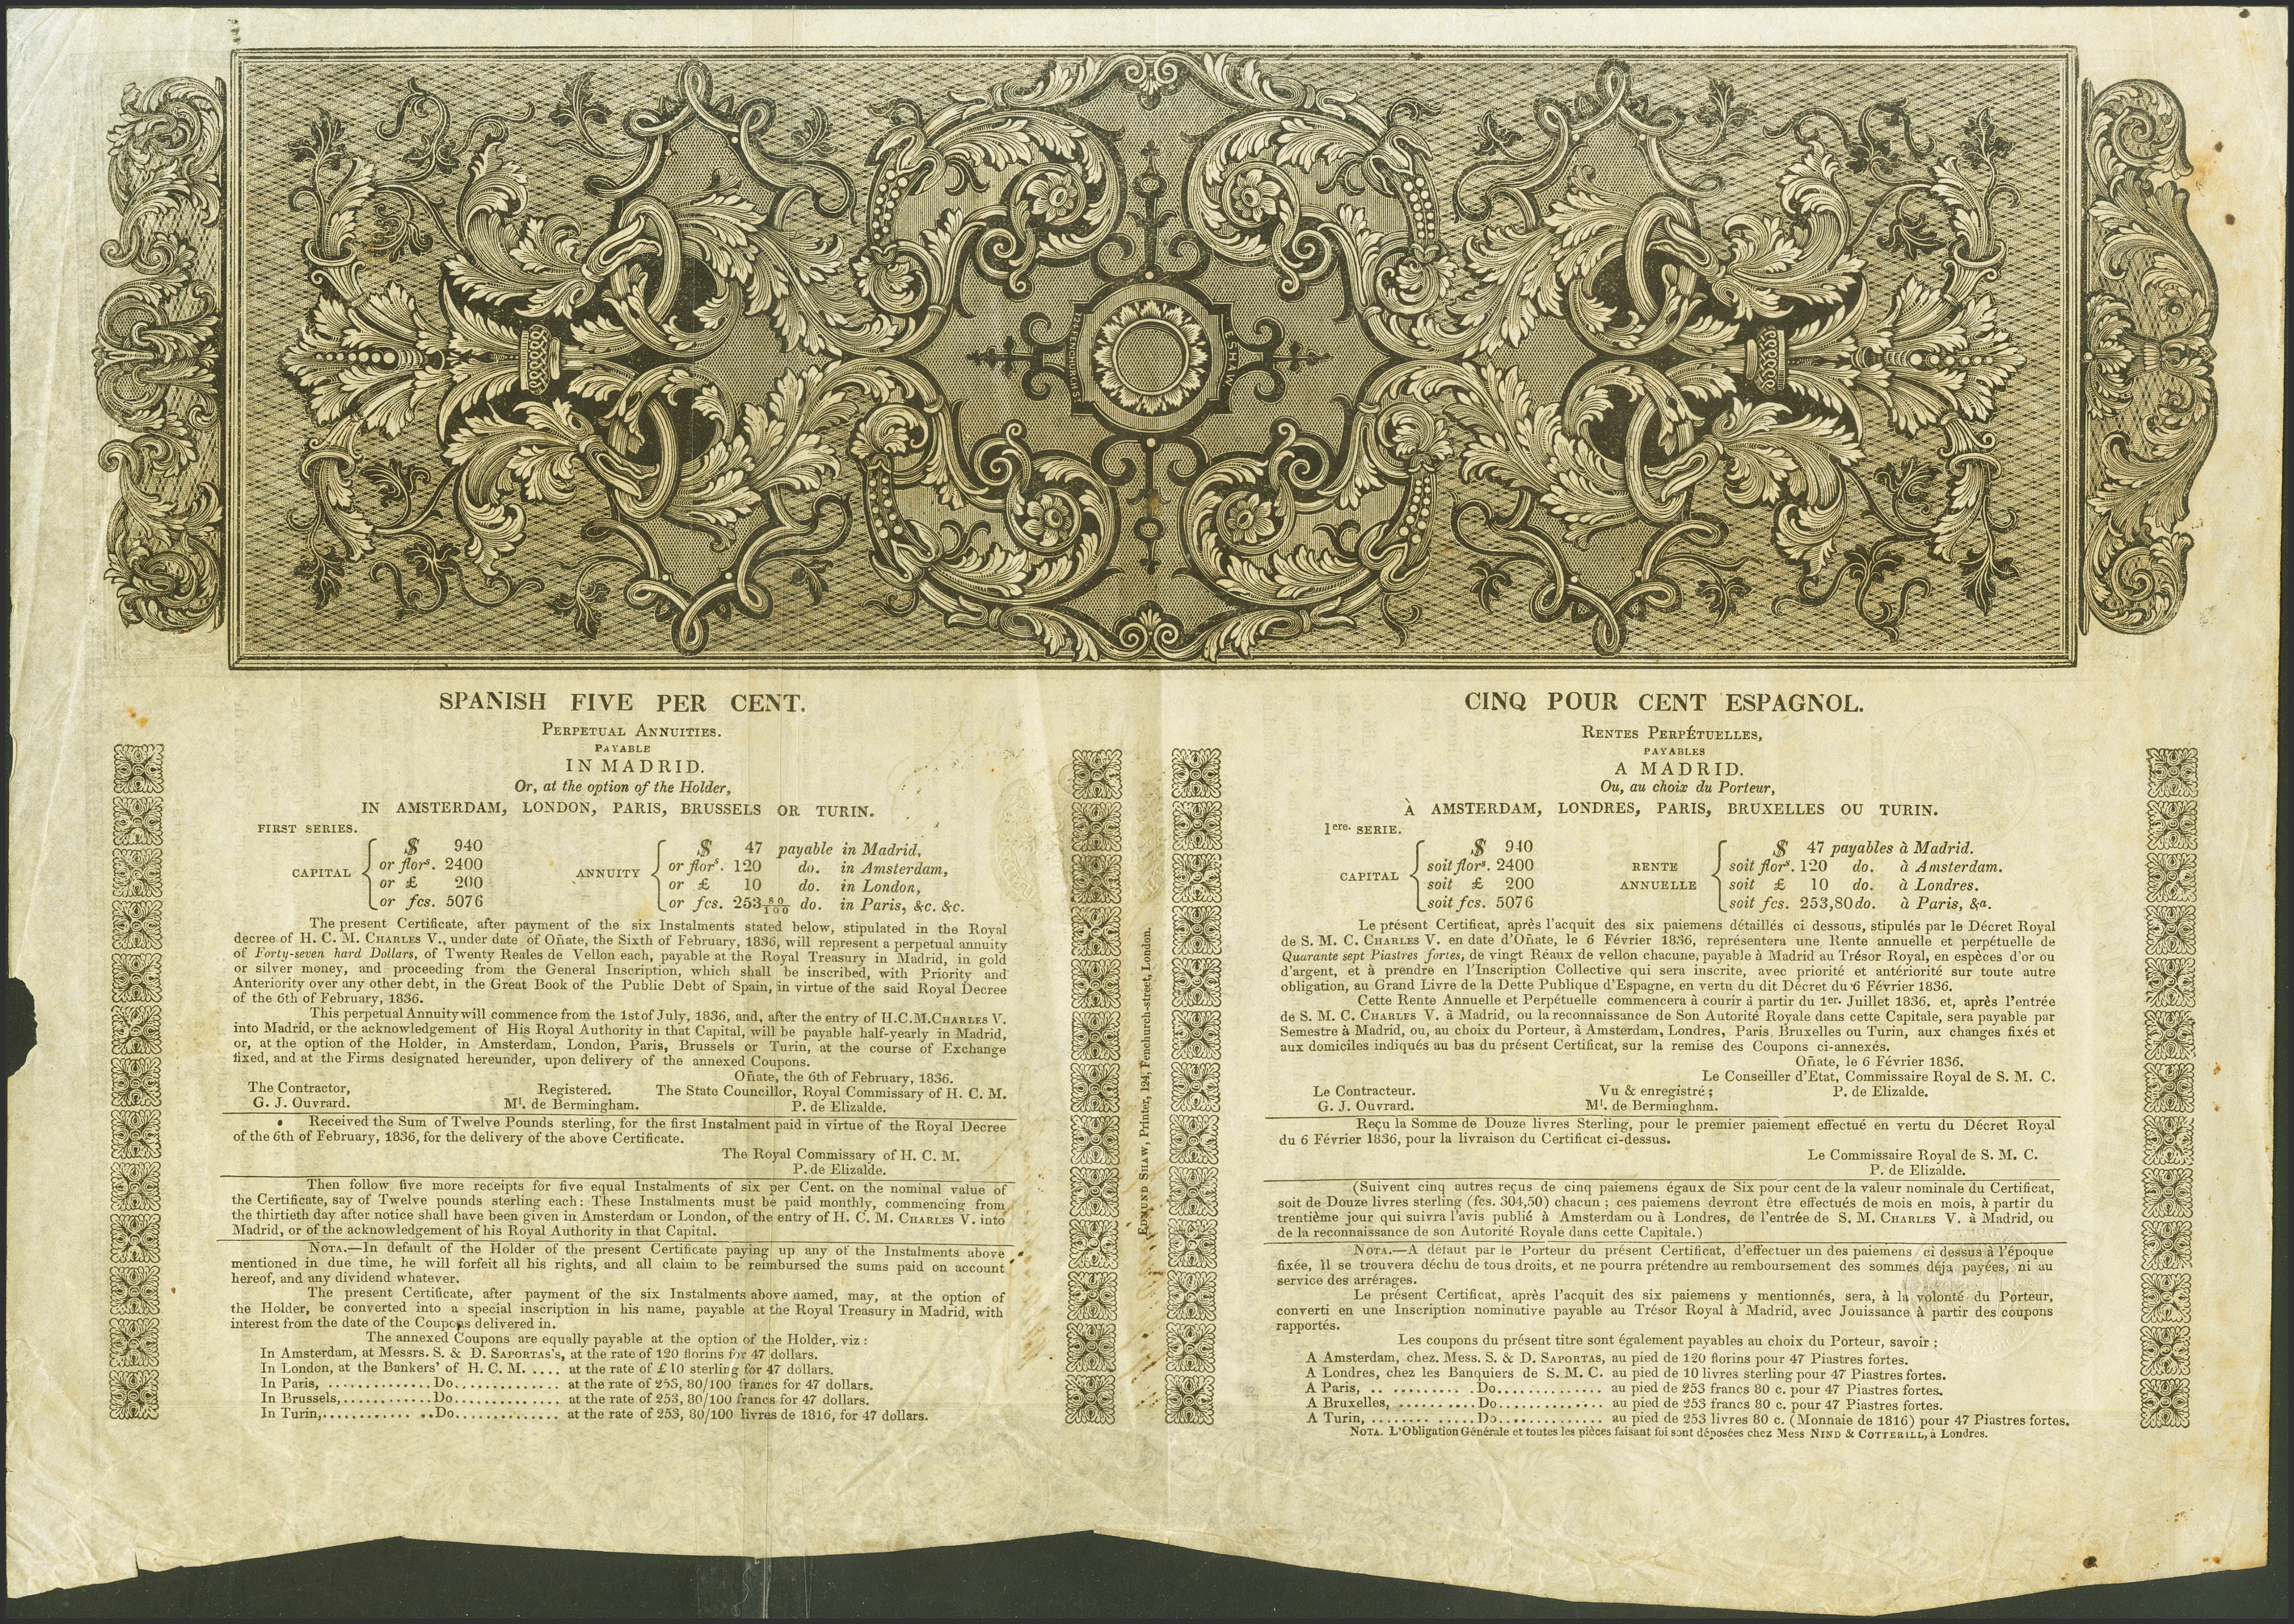 124 FENCHURCH ST
E SHAW
SPANISH FIVE PER CENT.
PERPETUAL ANNUITIES.
PAYABLE
IN MADRID.
Or, at the option of the Holder,
IN AMSTERDAM, LONDON, PARIS, BRUSSELS OR TURIN.
FIRST SERIES.
CAPITAL { $ 940
or flors. 2400
or £ 200
or fcs. 5076
ANNUITY { $ 47 payable in Madrid,
or flors. 120 do. in Amsterdam,
or £ 10 do. in London,
or fcs. 253 80/100 do. in Paris, &c. &c.
The present Certificate, after payment of the six Instalments stated below, stipulated in the Royal
decree of H. C. M. CHARLES V., under date of Oñate, the Sixth of February, 1836, will represent a perpetual annuity
of Forty-seven hard Dollars, of Twenty Reales de Vellon each, payable at the Royal Treasury in Madrid, in gold
or silver money, and proceeding from the General Inscription, which shall be inscribed, with Priority and
Anteriority over any other debt, in the Great Book of the Public Debt of Spain, in virtue of the said Royal Decree
of the 6th of February, 1836.
This perpetual Annuity will commence from the 1st of July, 1836, and, after the entry of H.C.M. CHARLES V.
into Madrid, or the acknowledgement of His Royal Authority in that Capital, will be payable half-yearly in Madrid,
or, at the option of the Holder, in Amsterdam, London, Paris, Brussels or Turin, at the course of Exchange
fixed, and at the Firms designated hereunder, upon delivery of the annexed Coupons.
Oñate, the 6th of February, 1836.
The Contractor, Registered. The State Councillor, Royal Commissary of H. C. M.
G. J. Ouvrard. Ml. de Bermingham. P. de Elizalde.
Received the Sum of Twelve Pounds sterling, for the first Instalment paid in virtue of the Royal Decree
of the 6th of February, 1836, for the delivery of the above Certificate.
The Royal Commissary of H. C. M.
P. de Elizalde.
Then follow five more receipts for five equal Instalments of six per Cent. on the nominal value of
the Certificate, say of Twelve pounds sterling each: These Instalments must be paid monthly, commencing from
the thirtieth day after notice shall have been given in Amsterdam or London, of the entry of H. C. M. CHARLES V. into
Madrid, or of the acknowledgement of his Royal Authority in that Capital.
NOTA.—In default of the Holder of the present Certificate paying up any of the Instalments above
mentioned in due time, he will forfeit all his rights, and all claim to be reimbursed the sums paid on account
hereof, and any dividend whatever.
The present Certificate, after payment of the six Instalments above named, may, at the option of
the Holder, be converted into a special inscription in his name, payable at the Royal Treasury in Madrid, with
interest from the date of the Coupons delivered in.
The annexed Coupons are equally payable at the option of the Holder, viz:
In Amsterdam, at Messrs. S. & D. SAPORTAS's, at the rate of 120 florins for 47 dollars.
In London, at the Bankers' of H. C. M. .... at the rate of £10 sterling for 47 dollars.
In Paris, .............Do............. at the rate of 253, 80/100 francs for 47 dollars.
In Brussels,............Do............. at the rate of 253, 80/100 francs for 47 dollars.
In Turin,............ ..Do............. at the rate of 253, 80/100 livres de 1816, for 47 dollars.
EDMUND SHAW, Printer, 124, Fenchurch-street, London.
CINQ POUR CENT ESPAGNOL.
RENTES PERPÉTUELLES,
PAYABLES
A MADRID.
Ou, au choix du Porteur,
À AMSTERDAM, LONDRES, PARIS, BRUXELLES OU TURIN.
1ere. SERIE.
CAPITAL { $ 940
soit flors. 2400
soit £ 200
soit fcs. 5076
RENTE ANNUELLE { $ 47 payables à Madrid.
soit flors. 120 do. à Amsterdam.
soit £ 10 do. à Londres.
soit fcs. 253,80 do. à Paris, &a.
Le présent Certificat, après l'acquit des six paiemens détaillés ci dessous, stipulés par le Décret Royal
de S. M. C. CHARLES V. en date d'Oñate, le 6 Février 1836, représentera une Rente annuelle et perpétuelle de
Quarante sept Piastres fortes, de vingt Réaux de vellon chacune, payable à Madrid au Trésor Royal, en espèces d'or ou
d'argent, et à prendre en l'Inscription Collective qui sera inscrite, avec priorité et antériorité sur toute autre
obligation, au Grand Livre de la Dette Publique d'Espagne, en vertu du dit Décret du 6 Février 1836.
Cette Rente Annuelle et Perpétuelle commencera à courir à partir du 1er. Juillet 1836, et, après l'entrée
de S. M. C. CHARLES V. à Madrid, ou la reconnaissance de Son Autorité Royale dans cette Capitale, sera payable par
Semestre à Madrid, ou, au choix du Porteur, à Amsterdam, Londres, Paris, Bruxelles ou Turin, aux changes fixés et
aux domiciles indiqués au bas du présent Certificat, sur la remise des Coupons ci-annexés.
Oñate, le 6 Février 1836.
Le Conseiller d'Etat, Commissaire Royal de S. M. C.
Le Contracteur. Vu & enregistré; P. de Elizalde.
G. J. Ouvrard. Ml. de Bermingham.
Reçu la Somme de Douze livres Sterling, pour le premier paiement effectué en vertu du Décret Royal
du 6 Février 1836, pour la livraison du Certificat ci-dessus.
Le Commissaire Royal de S. M. C.
P. de Elizalde.
(Suivent cinq autres reçus de cinq paiemens égaux de Six pour cent de la valeur nominale du Certificat,
soit de Douze livres sterling (fcs. 304,50) chacun; ces paiemens devront être effectués de mois en mois, à partir du
trentième jour qui suivra l'avis publié à Amsterdam ou à Londres, de l'entrée de S. M. CHARLES V. à Madrid, ou
de la reconnaissance de son Autorité Royale dans cette Capitale.)
NOTA.—A défaut par le Porteur du présent Certificat, d'effectuer un des paiemens ci dessus à l'époque
fixée, il se trouvera déchu de tous droits, et ne pourra prétendre au remboursement des sommes déja payées, ni au
service des arrérages.
Le présent Certificat, après l'acquit des six paiemens y mentionnés, sera, à la volonté du Porteur,
converti en une Inscription nominative payable au Trésor Royal à Madrid, avec Jouissance à partir des coupons
rapportés.
Les coupons du présent titre sont également payables au choix du Porteur, savoir:
A Amsterdam, chez. Mess. S. & D. SAPORTAS, au pied de 120 florins pour 47 Piastres fortes.
A Londres, chez les Banquiers de S. M. C. au pied de 10 livres sterling pour 47 Piastres fortes.
A Paris, .. ......... .Do.............. au pied de 253 francs 80 c. pour 47 Piastres fortes.
A Bruxelles, ..........Do.............. au pied de 253 francs 80 c. pour 47 Piastres fortes.
A Turin, ........ .....Do.............. au pied de 253 livres 80 c. (Monnaie de 1816) pour 47 Piastres fortes.
NOTA. L'Obligation Générale et toutes les pièces faisant foi sont déposées chez Mess NIND & COTTERILL, à Londres.